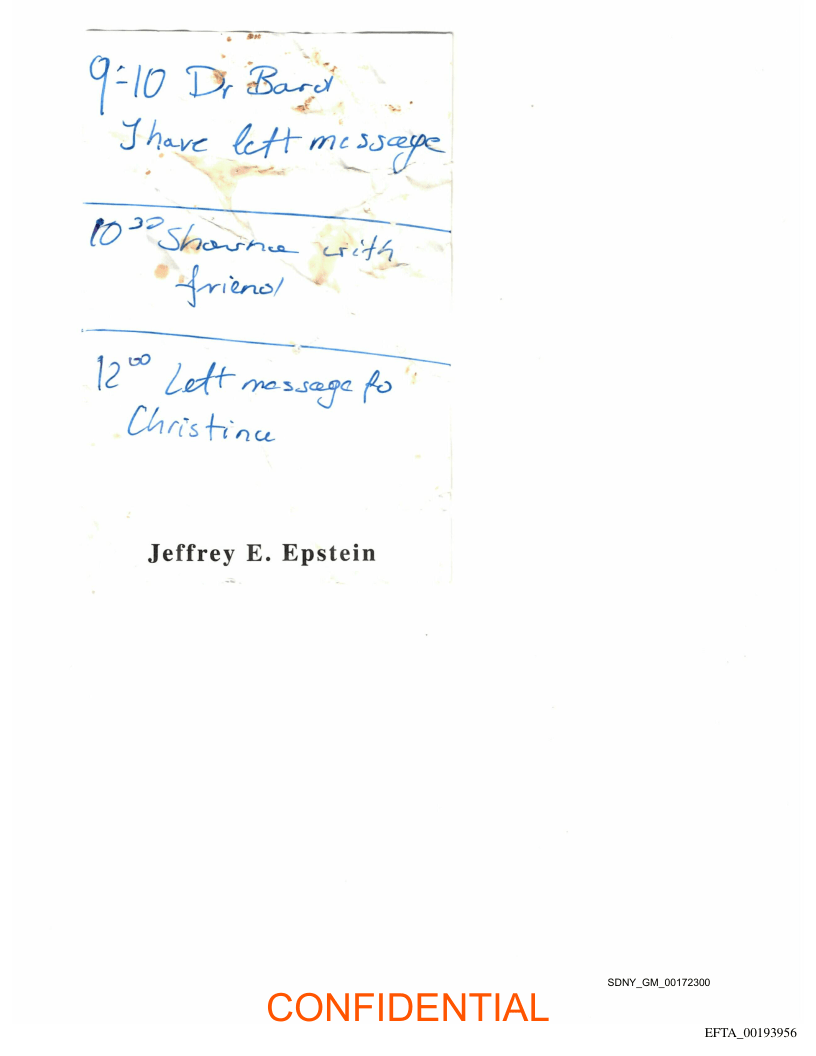 9-10 Dr Bard
I have left message
10 30 Shawna with
friend
12 00 Left message fo
Christina
Jeffrey E. Epstein
SDNY_GM_00172300
CONFIDENTIAL
EFTA_00193956